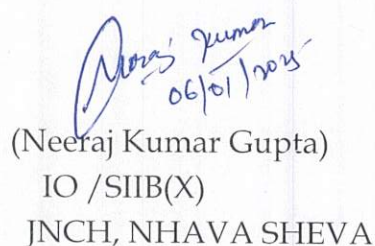 Neeraj Kumar
06/01/2025
(Neeraj Kumar Gupta)
IO /SIIB(X)
JNCH, NHAVA SHEVA